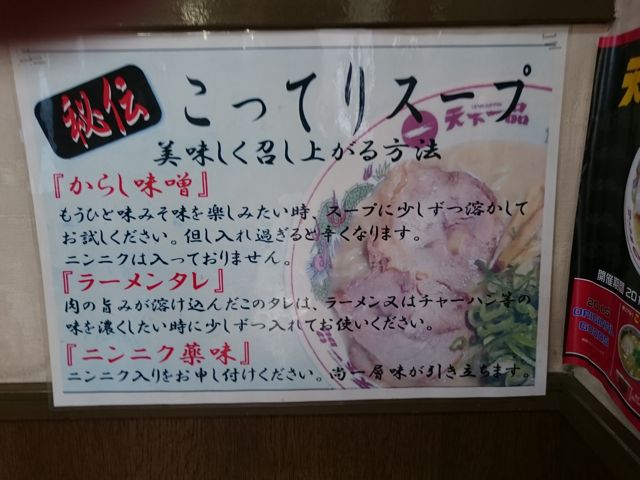 秘伝 こってりスープ
天下一品
美味しく召し上がる方法
『からし味噌』
もうひと味みそ味を楽しみたい時、スープに少しずつ溶かして
お試しください。但し入れ過ぎると辛くなります。
ニンニクは入っておりません。
『ラーメンタレ』
肉の旨みが溶け込んだこのタレは、ラーメン又はチャーハン等の
味を濃くしたい時に少しずつ入れてお使いください。
『ニンニク薬味』
ニンニク入りをお申し付けください。尚一層味が引き立ちます。
天
開催期間 20
2015
ORIGINAL
GOODS